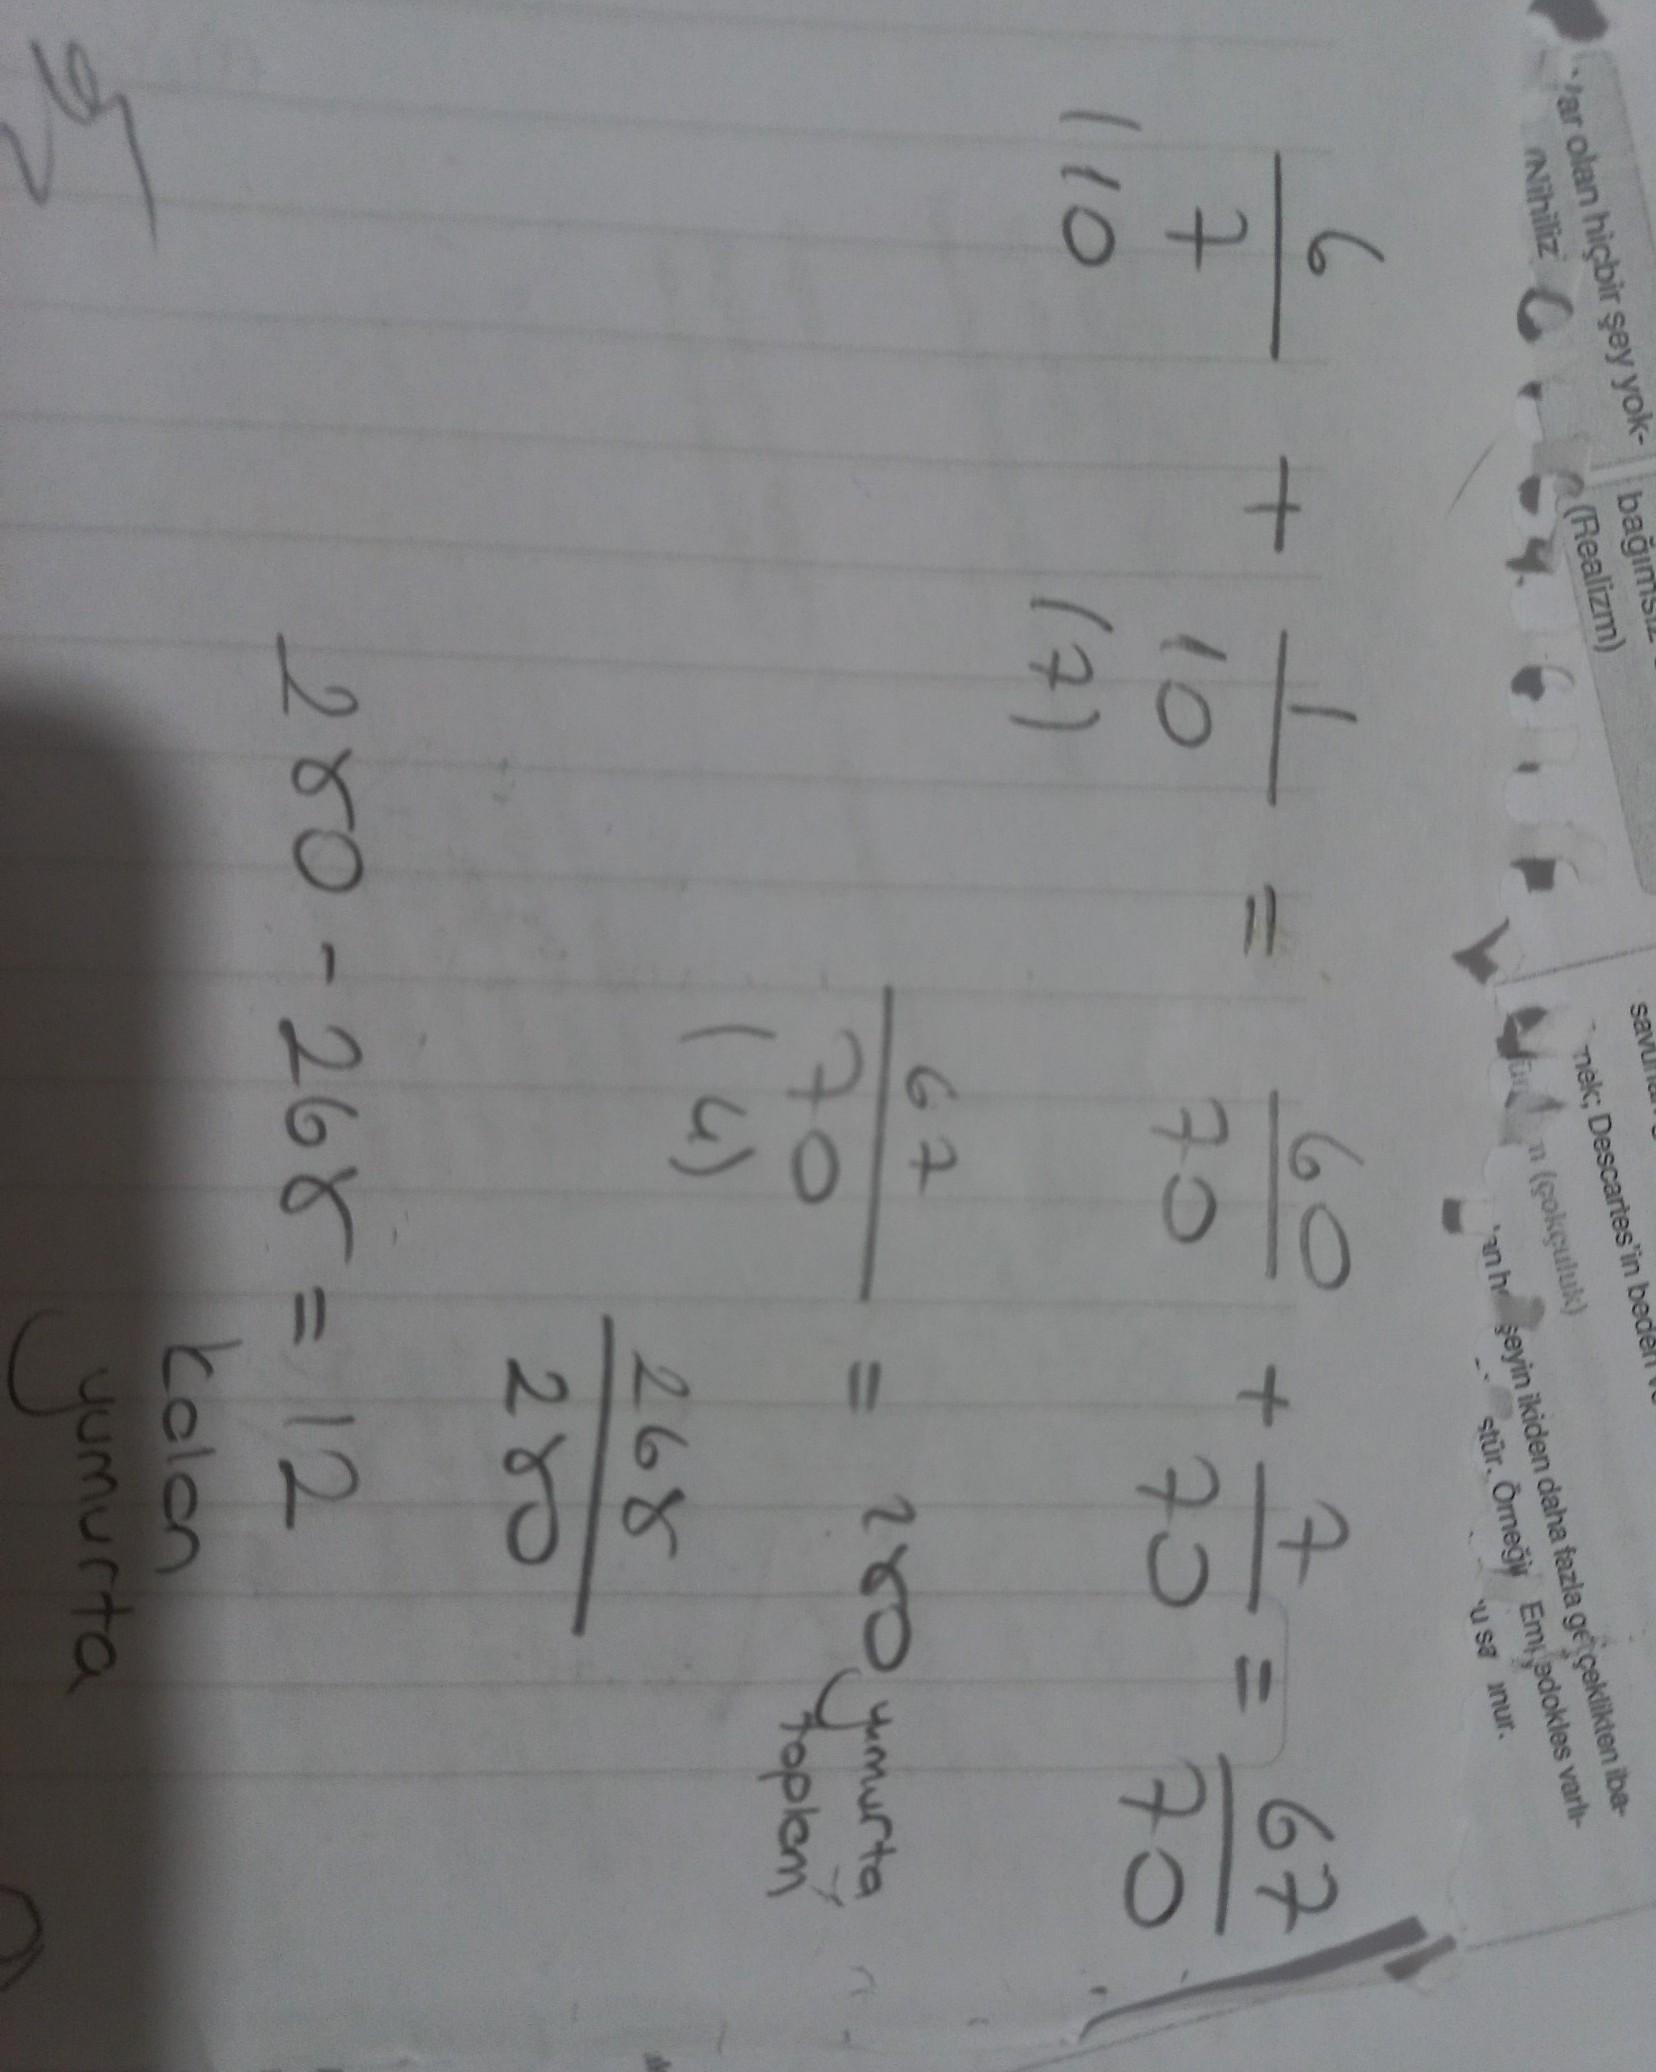 Var olan hiçbir şey yok-
(Nihiliz
bağımsız
(Realizm)
nek; Descartes'in beden
m (çokçuluk)
şeyin ikiden daha fazla gerçeklikten iba-
stür. Örneğin Empedokles varlı-
6/7 + 1/10 = 60/70 + 7/70 = 67/70
(10 (7)
67/70 = 280 yumurta
(4) toplam
268/280
280 - 268 = 12
kalan
yumurta